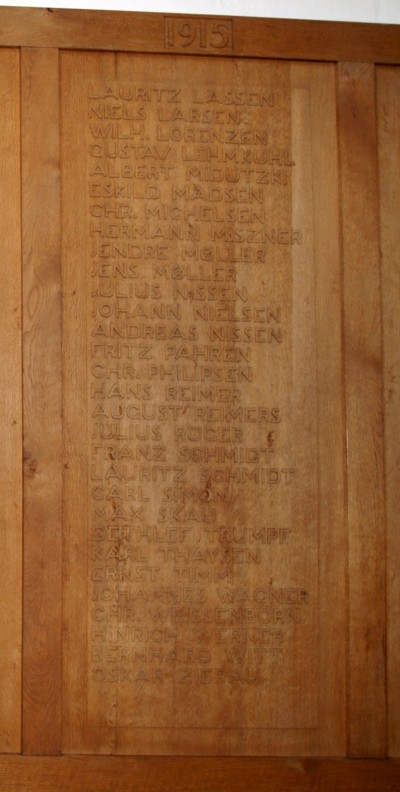 1915
LAURITZ LASSEN
NIELS LARSEN
WILH. LORENZEN
GUSTAV LEHMKUHL
ALBERT MIDUTZKI
ESKILD MADSEN
CHR. MICHELSEN
HERMANN MISZNER
JENDRE MØLLER
JENS MØLLER
JULIUS NISSEN
JOHANN NIELSEN
ANDREAS NISSEN
FRITZ PAHREN
CHR. PHILIPSEN
HANS REIMER
AUGUST REIMERS
JULIUS RÜGER
FRANZ SCHMIDT
LAURITZ SCHMIDT
CARL SIMON
MAX SKAU
DETHLEF TRUMPF
KARL THAYSEN
ERNST TIMM
JOHANNES WAGNER
CHR. WEISSENBORN
HINRICH WERNER
BERNHARD WITT
OSKAR